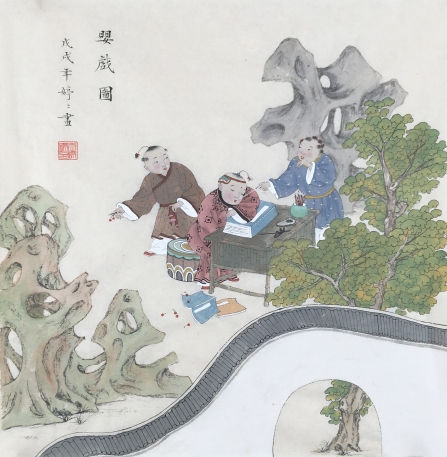 嬰戲圖
戊戌年婷婷畫